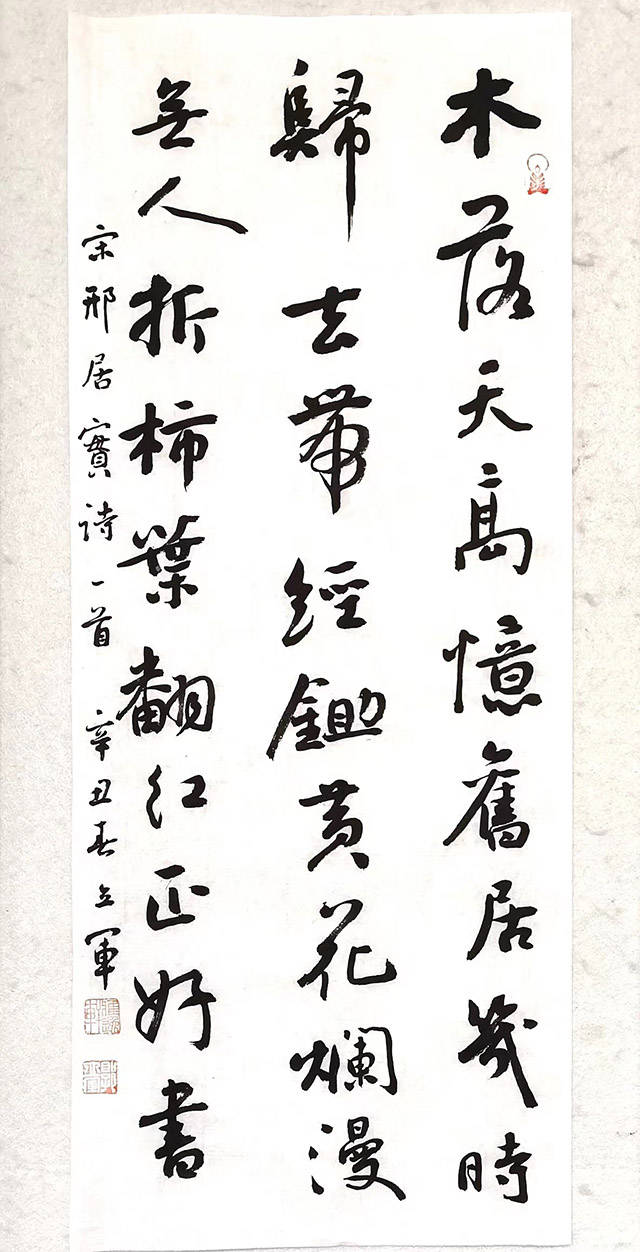 木落天高憶舊居幾時
歸去帶經鋤黄花爛漫
無人折柿葉翻紅正好書
宋邢居實詩一首 辛丑春立軍